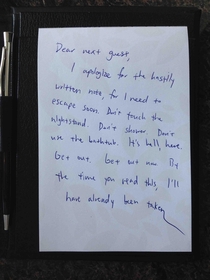 Dear next guest,
I apologize for the hastily
written note, for I need to
escape soon. Don't touch the
nightstand. Don't shower. Don't
use the bathtub. It's hell, here.
Get out. Get out now. By
the time you read this, I'll
have already been taken